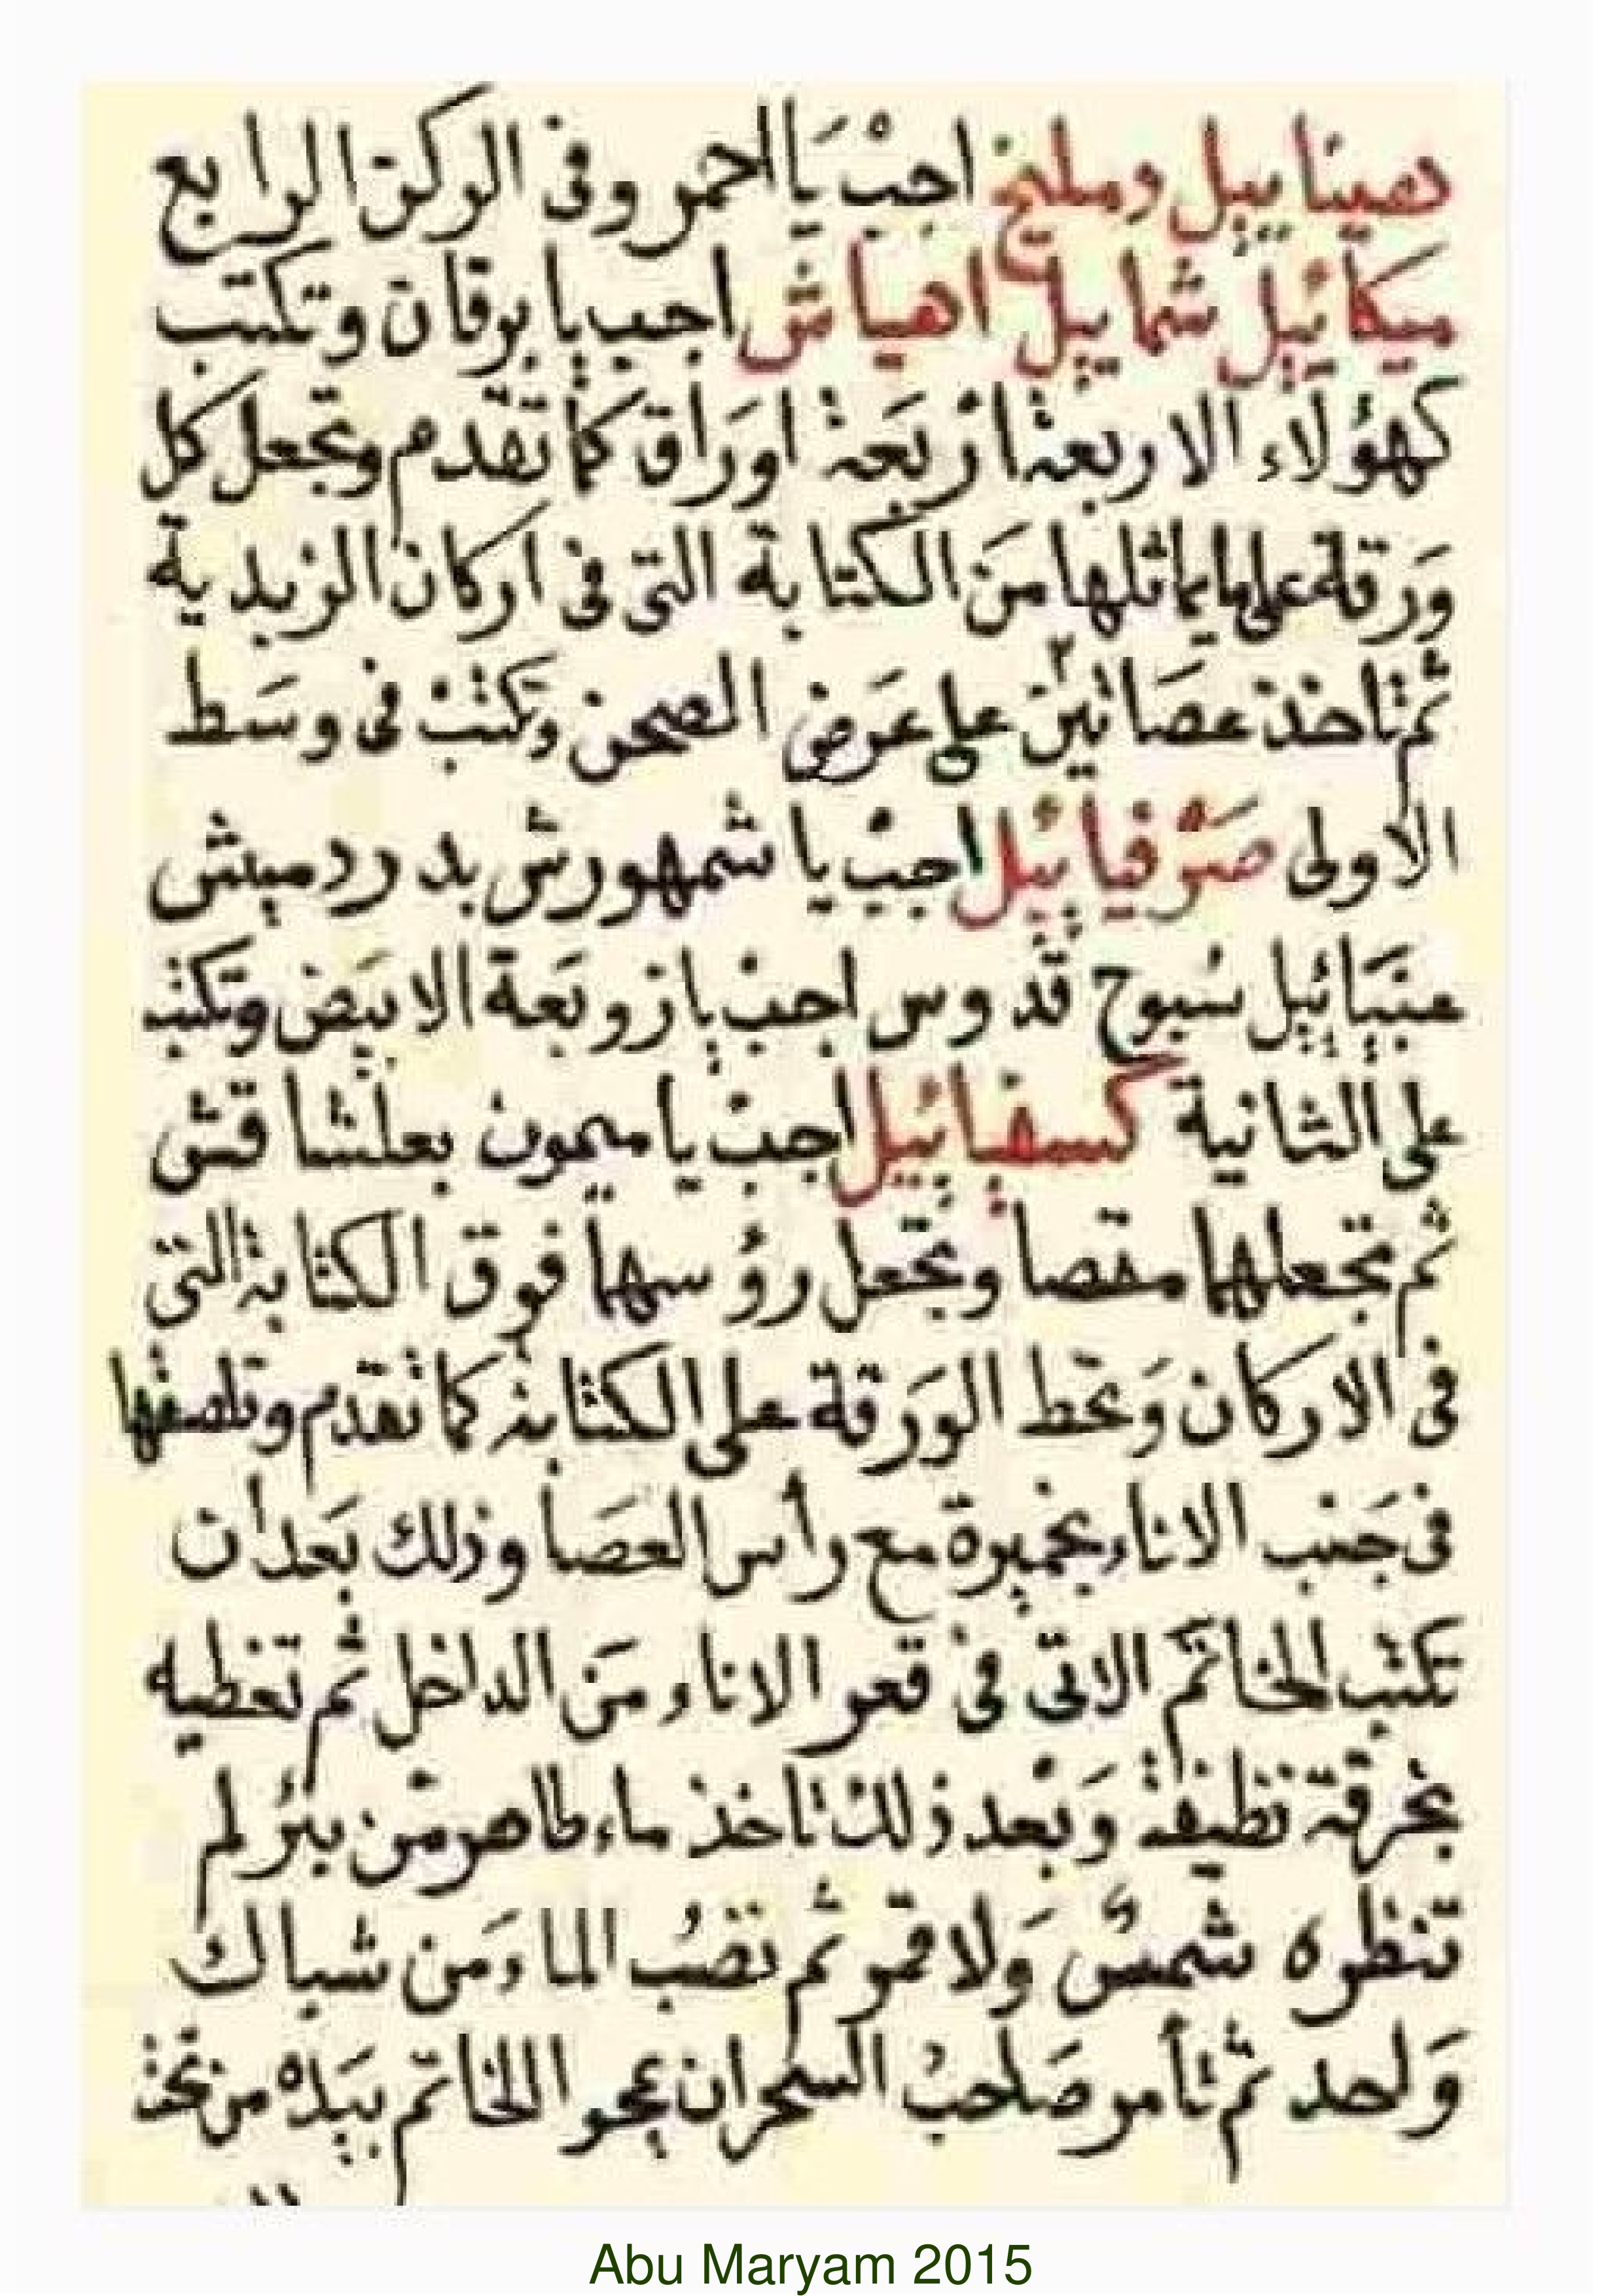 وملیخ اجب یا احمر وفی الرکن الرابع
میکائیل شمائیل اهیاش اجب یا برقان وتکتب
کهؤلاء الاربعة اربعة اوراق کما تقدم وتجعل کل
ورقة علی ما یماثلها من الکتابة التی فی ارکان الزبدیة
ثم تاخذ عصاتین علی عرض الصحن وتکتب فی وسط
الاولی صرفیائیل اجب یا شمهورش بدردمیش
عنیائیل سبوح قدوس اجب یا زوبعة الابیض وتکتب
علی الثانیة کسفیائیل اجب یا میمون بعلشاقش
ثم تجعلها مقصا وتجعل رؤسها فوق الکتابة التی
فی الارکان وتحط الورقة علی الکتابة کما تقدم وتلصقها
فی جنب الاناء بخمیرة مع رأس العصا وذلك بعد ان
تکتب الخاتم الاتی فی قعر الاناء من الداخل ثم تغطیه
بخرقة نظیفة وبعد ذلك تاخذ ماء طاهر من بئر لم
تنظره شمس ولا قمر ثم تصب الماء من شباك
واحد ثم تأمر صاحب السحر ان یمحو الخاتم بیده من تحت
Abu Maryam 2015